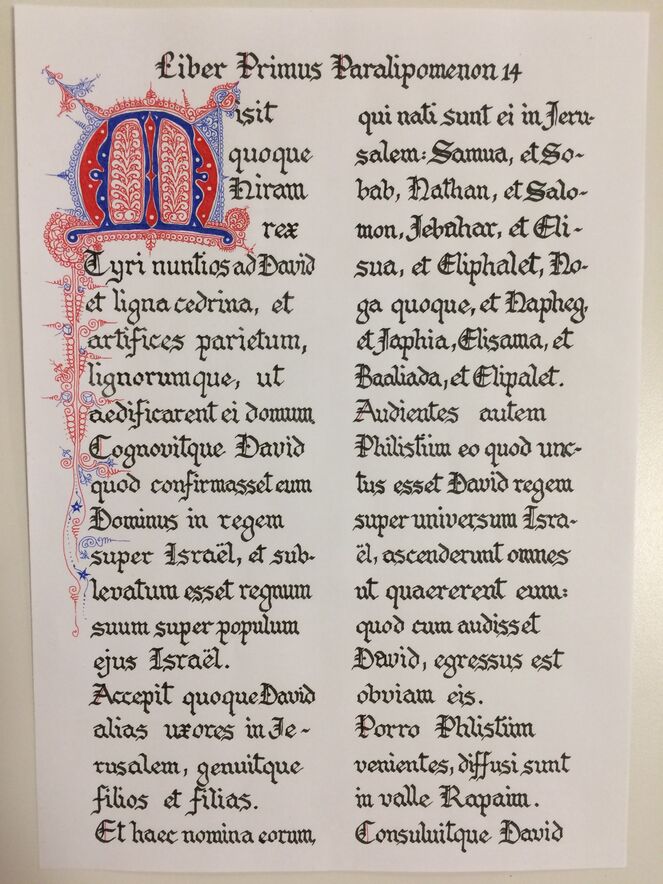 Liber Primus Paralipomenon 14
Misit
quoque
Hiram
rex
Tyri nuntios ad David
et ligna cedrina, et
artifices parietum,
lignorumque, ut
aedificarent ei domum.
Cognovitque David
quod confirmasset eum
Dominus in regem
super Israël, et sub-
levatum esset regnum
suum super populum
ejus Israël.
Accepit quoque David
alias uxores in Je-
rusalem, genuitque
filios et filias.
Et haec nomina eorum,
qui nati sunt ei in Jeru-
salem: Samua, et So-
bab, Nathan, et Salo-
mon, Jebahar, et Eli-
sua, et Eliphalet, No-
ga quoque, et Napheg,
et Japhia, Elisama, et
Baaliada, et Elipalet.
Audientes autem
Philistiim eo quod unc-
tus esset David regem
super universum Isra-
ël, ascenderunt omnes
ut quaererent eum:
quod cum audisset
David, egressus est
obviam eis.
Porro Philistiim
venientes, diffusi sunt
in valle Rapaim.
Consuluitque David